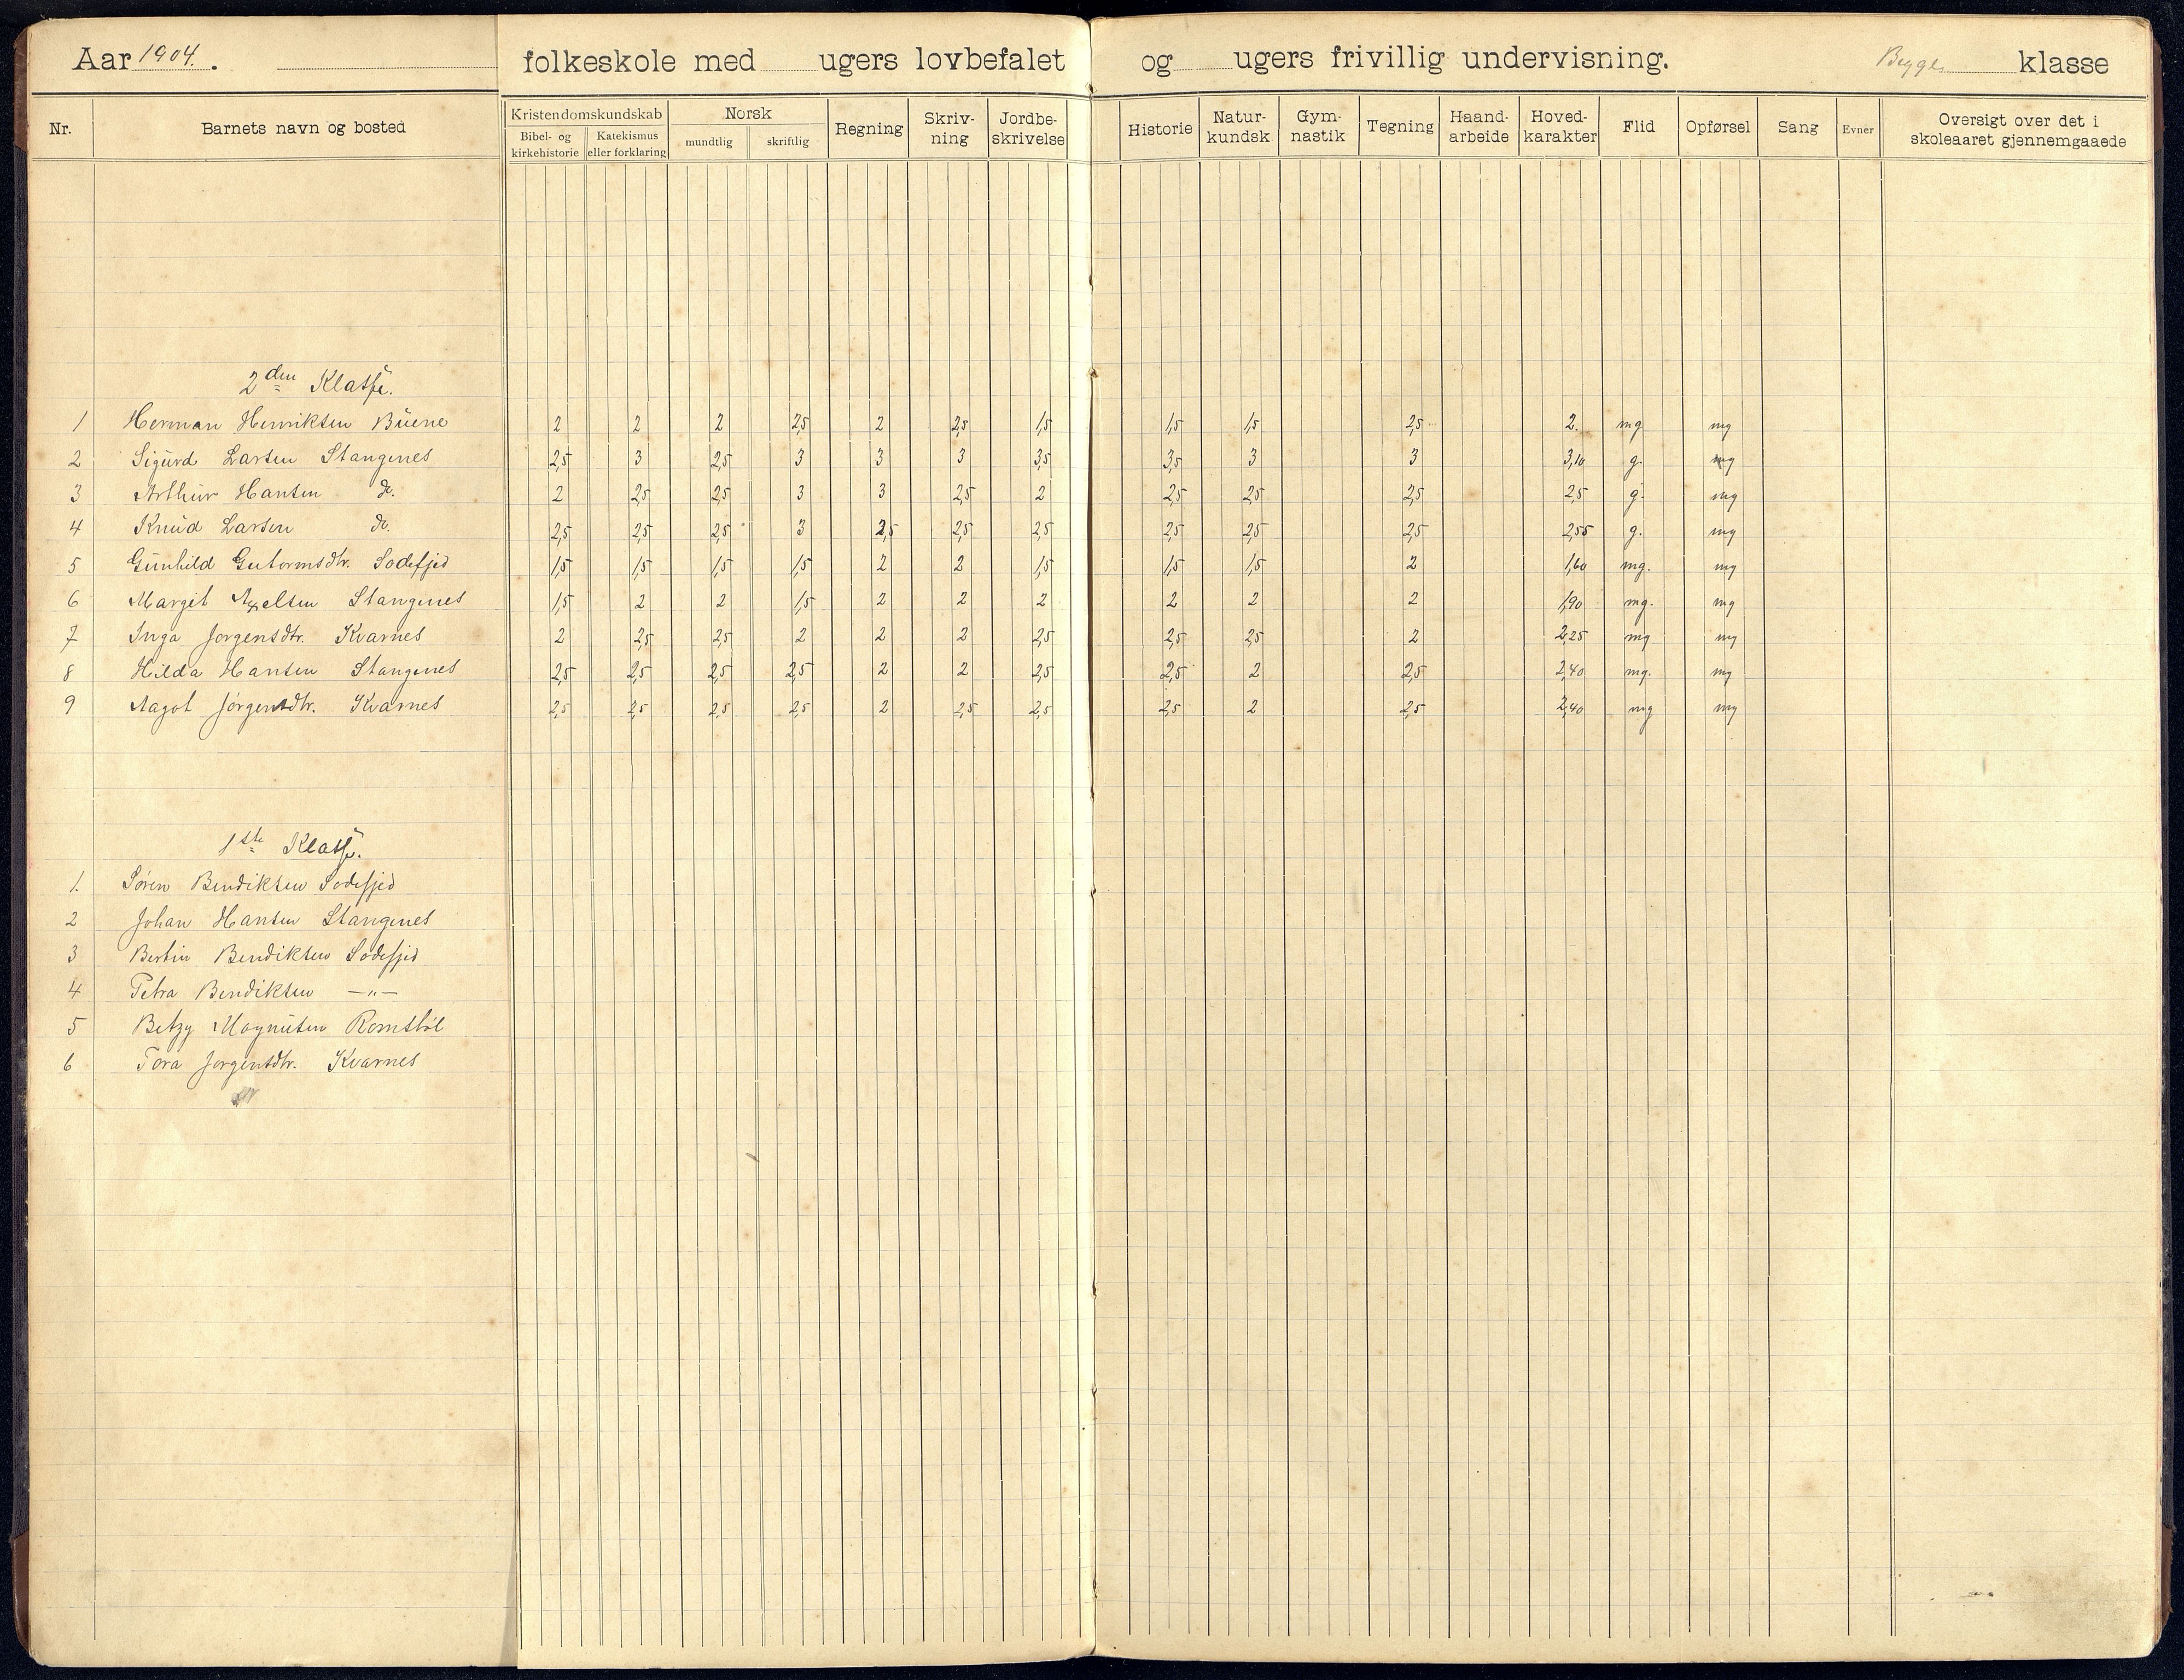 Aar 1904. folkeskole med ugers lovbefalet og ugers frivillig undervisning. Begge klasse
Nr. Barnets navn og bosted Kristendomskundskab Bibel- og kirkehistorie Katekismus eller forklaring Norsk mundtlig skriftlig Regning Skriv-ning Jordbe-skrivelse Historie Natur-kundsk Gym-nastik Tegning Haand-arbeide Hoved-karakter Flid Opførsel Sang Evner Oversigt over det i skoleaaret gjennemgaaede
2den Klasse.
1 Herman Henriksen Buene 2 2 2 2,5 2 2,5 1,5 1,5 1,5 2,5 2. mg mg
2 Sigurd Larsen Stangenes 2,5 3 2,5 3 3 3 3,5 3,5 3 3 3,10 g. mg
3 Arthur Hansen do. 2 2,5 2,5 3 3 2,5 2 2,5 2,5 2,5 2,5 g. mg
4 Knud Larsen do. 2,5 2,5 2,5 3 2,5 2,5 2,5 2,5 2,5 2,5 2,55 g. mg
5 Gunhild Gutormsdtr. Sodefjed 1,5 1,5 1,5 1,5 2 2 1,5 1,5 1,5 2 1,60 mg. mg
6 Margit Axelsen Stangenes 1,5 2 2 1,5 2 2 2 2 2 2 1,90 mg. mg
7 Inga Jørgensdtr. Kvarnes 2 2,5 2,5 2 2 2 2,5 2,5 2,5 2 2,25 mg mg
8 Hilda Hansen Stangenes 2,5 2,5 2,5 2,5 2 2 2,5 2,5 2 2,5 2,40 mg. mg
9 Aagot Jørgensdtr. Kvarnes 2,5 2,5 2,5 2,5 2 2,5 2,5 2,5 2 2,5 2,40 mg mg
1ste Klasse.
1. Søren Bendiksen Sodefjed
2 Johan Hansen Stangenes
3 Bertin Bendiksen Sodefjed
4 Petra Bendiksen —"—
5 Betzy Magnusen Romstøl
6 Tora Jørgensdtr. Kvarnes